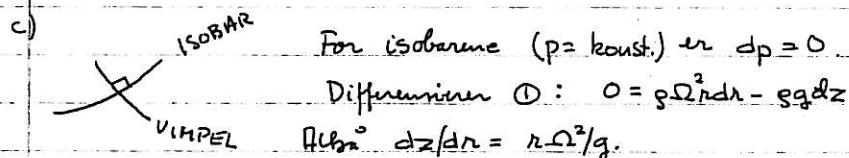 c)
ISOBAR
VIMPEL
For isobarene (p= konst.) er dp = 0.
Differensierer ①: 0 = ρΩ²rdr - ρgdz
Altså dz/dr = rΩ²/g.